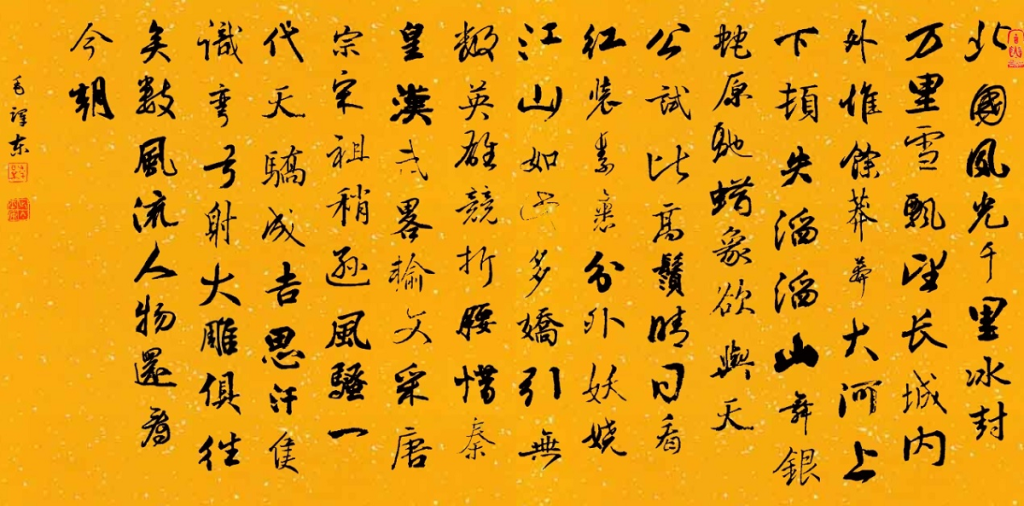 北國风光千里冰封
万里雪飄望长城内
外惟餘莽莽大河上
下頓失滔滔山舞銀
蛇原馳蜡象欲與天
公試比高鬚晴日看
红装素裹分外妖娆
江山如此多嬌引無
數英雄競折腰惜秦
皇漢武畧輸文采唐
宗宋祖稍遜風騷一
代天驕成吉思汗隻
識彎弓射大雕俱往
矣數風流人物還看
今朝
毛澤东